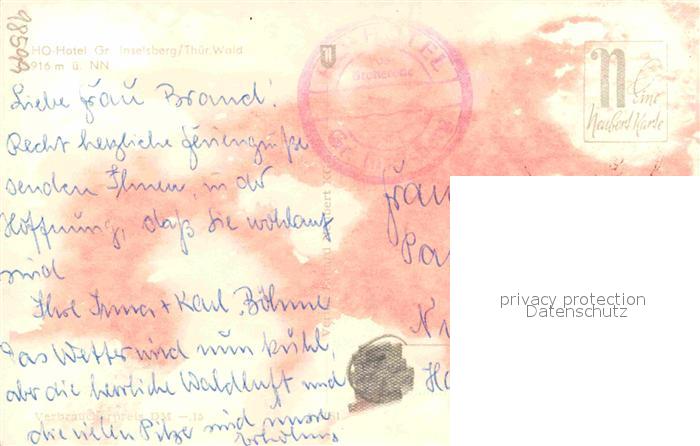 98599
HO-Hotel Gr. Inselsberg/Thür. Wald
916 m ü. NN
Liebe Frau Brand!
Recht herzliche Feriengrüße
senden Ihnen, in der
Hoffnung, daß Sie wohlauf
sind
Ihre Irma + Karl Böhme
Das Wetter wird nun kühl,
aber die herrliche Waldluft und
die vielen Pilze sind unsre
Erholung
Verbraucherpreis DM —.15
HOTEL
Brotterode
Gr.
n
Eine
Neubert Karte
Frau
privacy protection
Datenschutz